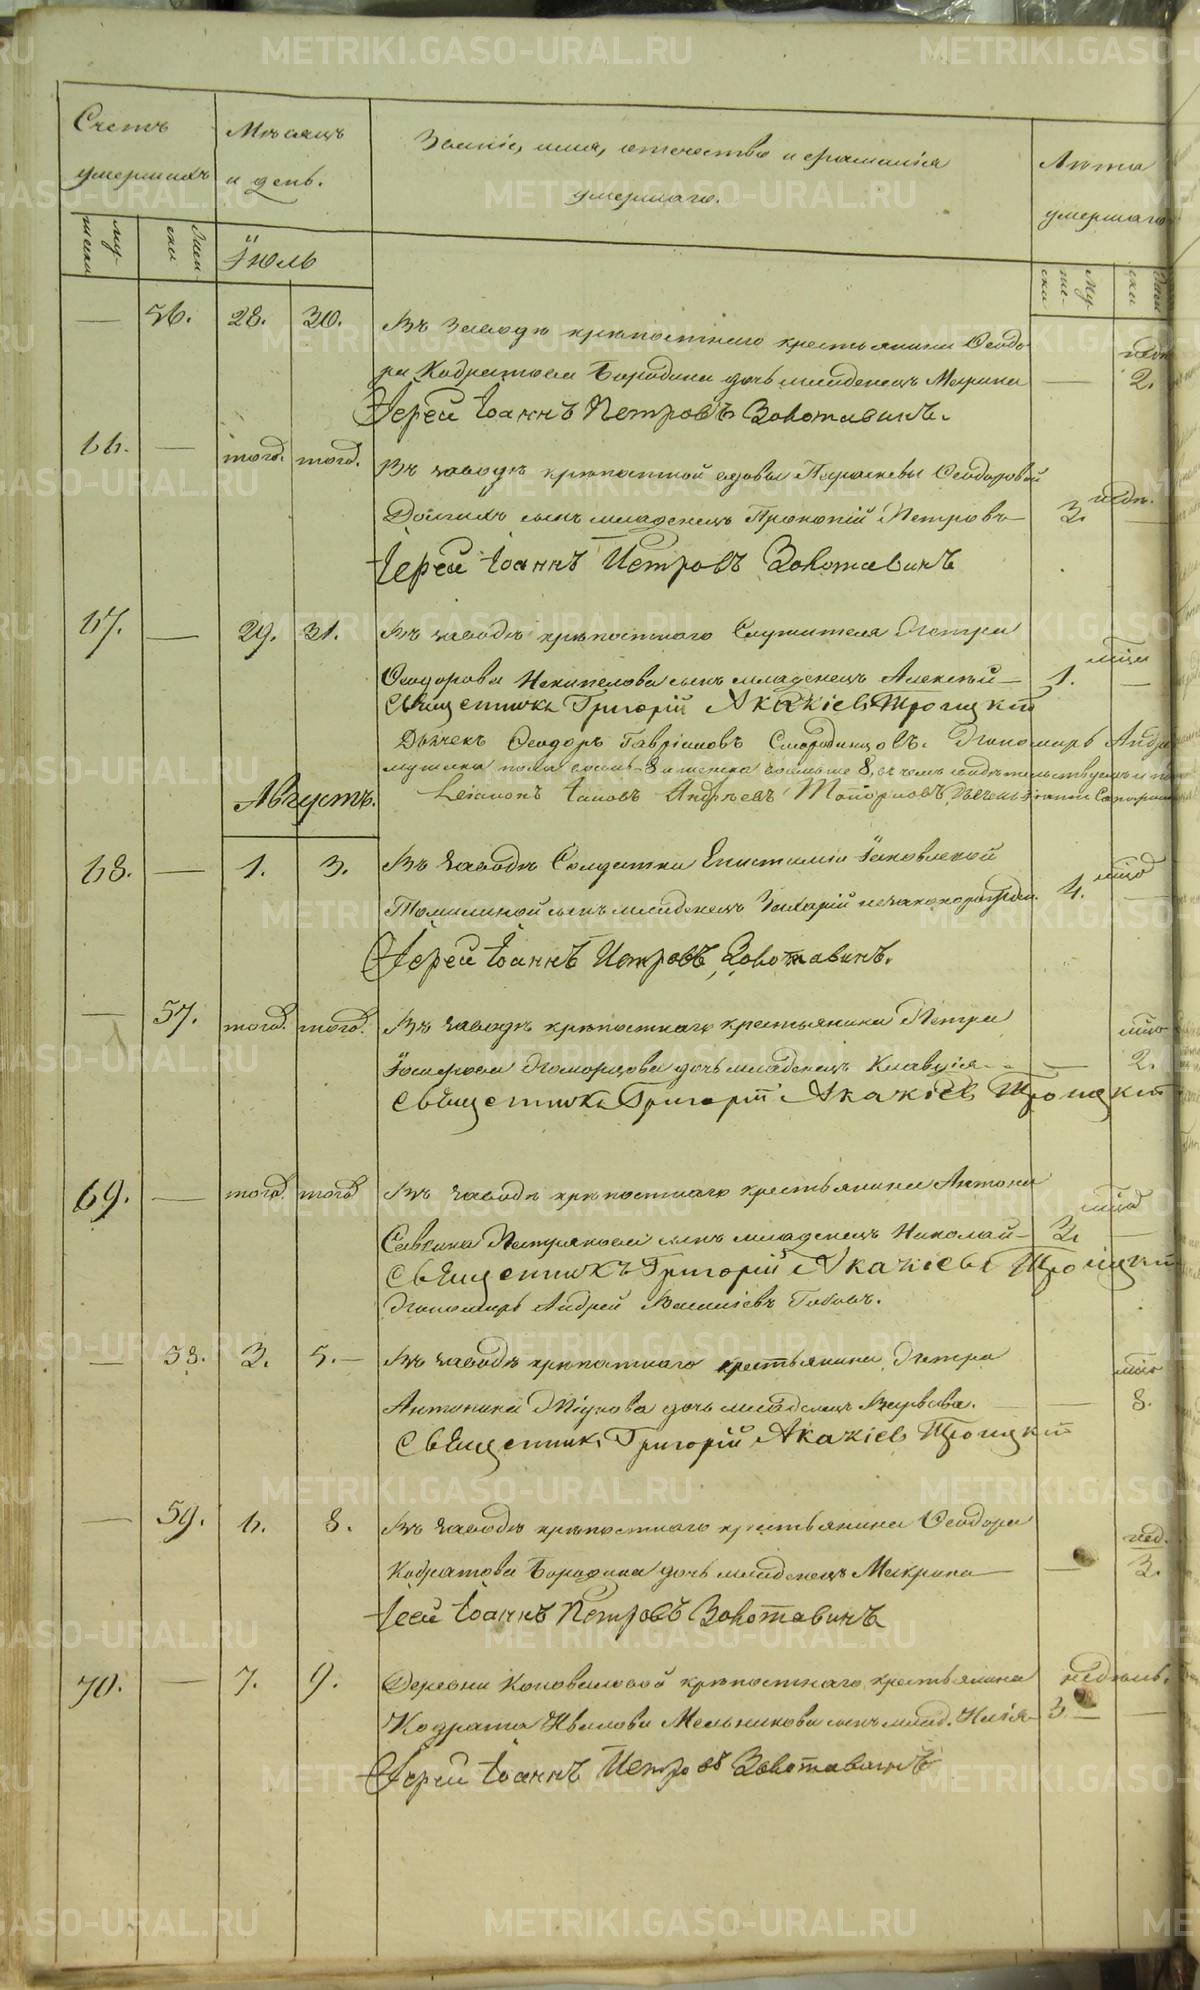 Счетъ умершихъ
Мѣсяцъ и день.
Званіе, имя, отечество и фамилія
умершаго.
Лѣта умершаго
мужеска
женски
Іюль
— 56. 28. 30. Въ Заводѣ крѣпостнаго крестьянина Ѳеодо-
ра Кодратьева Бородина дочь младенецъ Марина — 2.
Іерей Іоаннъ Петровъ Золотавинъ.
66. — тогож. тогож. Въ заводѣ крѣпостной вдовы Параскевы Ѳеодоровой
Долгихъ сынъ младенецъ Прокопій Петровъ — 3. недѣ. —
Іерей Іоаннъ Петровъ Золотавинъ
67. — 29. 31. Въ заводѣ крѣпостнаго Служителя Петра
Ѳеодорова Некипелова сынъ младенецъ Алексѣй — 1. —
Священникъ Григорій Акакіевъ Троицкій
Дьячекъ Ѳеодоръ Гавріиловъ Смородинцовъ. Пономарь Андре
мужеска пола восмь 8 и женска восмь же 8, въ чемъ свидѣтельствуемъ
Августъ.
68. — 1. 3. Въ Заводѣ Солдатки Епистиміи Іаковлевой
Томилиной сынъ младенецъ Захарій незаконорожден. 4. —
Іерей Іоаннъ Петровъ Золотавинъ.
— 57. тогож. тогож. Въ заводѣ крѣпостнаго крестьянина Петра
Іосифова Поморцова дочь младенецъ Клавдія — 2.
Священникъ Григорій Акакіевъ Троицкій
69. — тогож. тогож. Въ заводѣ крѣпостнаго крестьянина Антона
Савина Петрякова сынъ младенецъ Николай — 3. —
Священникъ Григорій Акакіевъ Троицкій
Пономарь Андрей Василіевъ Бабинъ.
— 58. 3. 5. — Въ заводѣ крѣпостнаго крестьянина Петра
Антонина дочь младенецъ Варвара. — 8.
Священникъ Григорій Акакіевъ Троицкій
— 59. 6. 8. Въ Заводѣ крѣпостнаго крестьянина Ѳеодора
Кодратова Бородина дочь младенецъ Макрина — — нед. 3.
Іерей Іоаннъ Петровъ Золотавинъ
70. — 7. 9. Деревни Коноваловой крѣпостнаго крестьянина недѣль.
Кодрата Ивалова Мельникова сынъ млад. Илія — 3. — —
Іерей Іоаннъ Петровъ Золотавинъ
METRIKI.GASO-URAL.RU